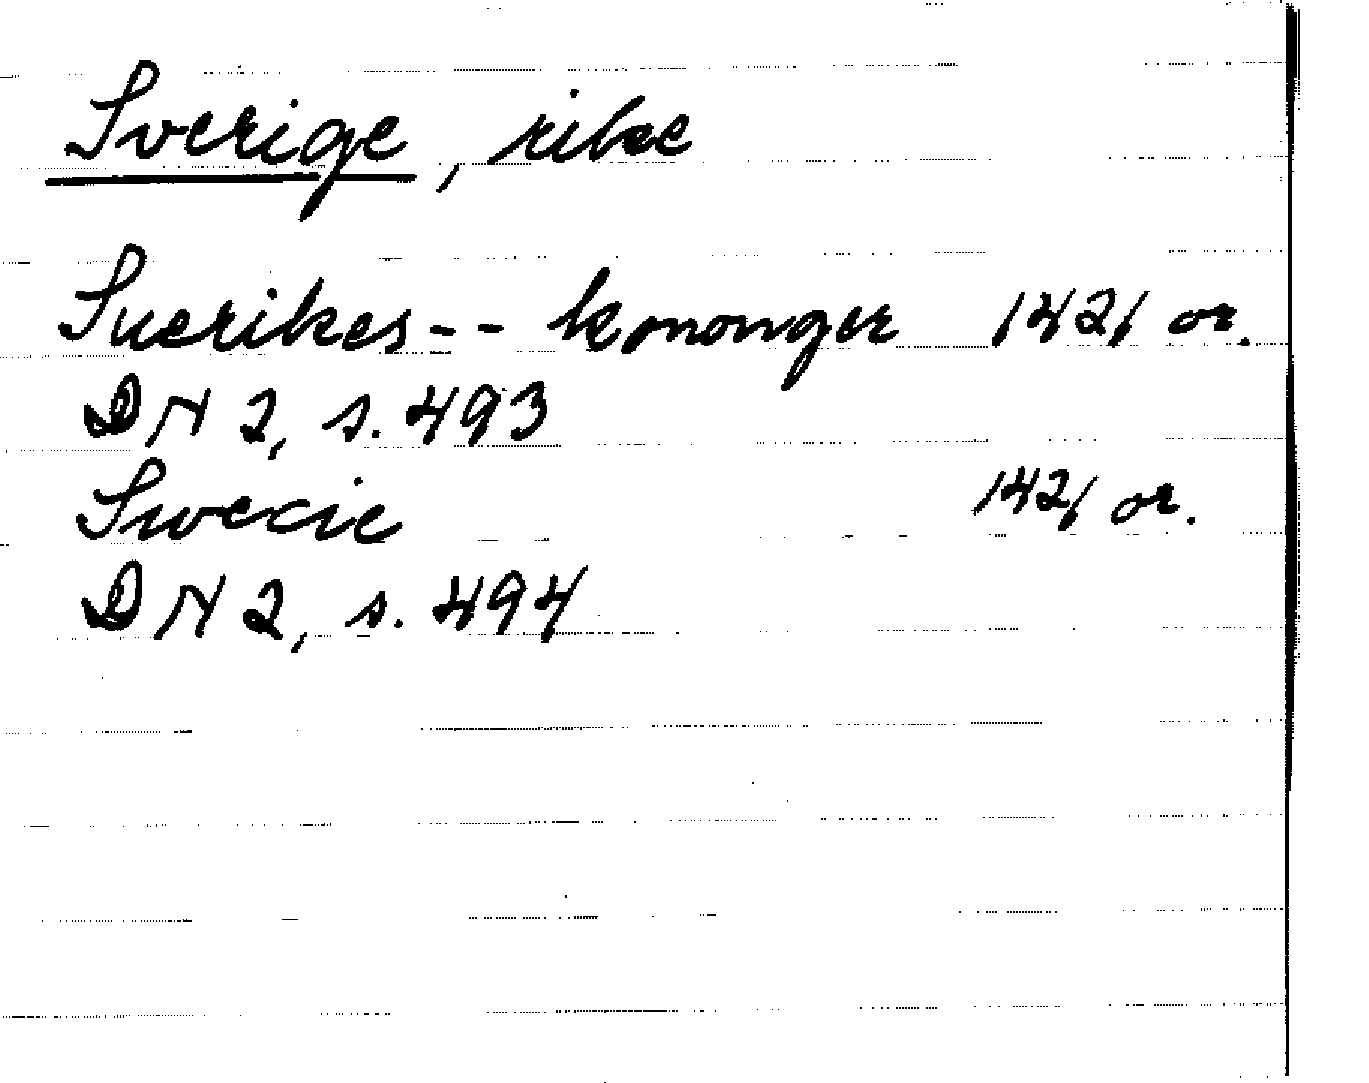 Sverige, rike
Suerikes-- kononger 1421 or.
DN 2, s. 493
Swecie 1421 or.
DN 2, s. 494